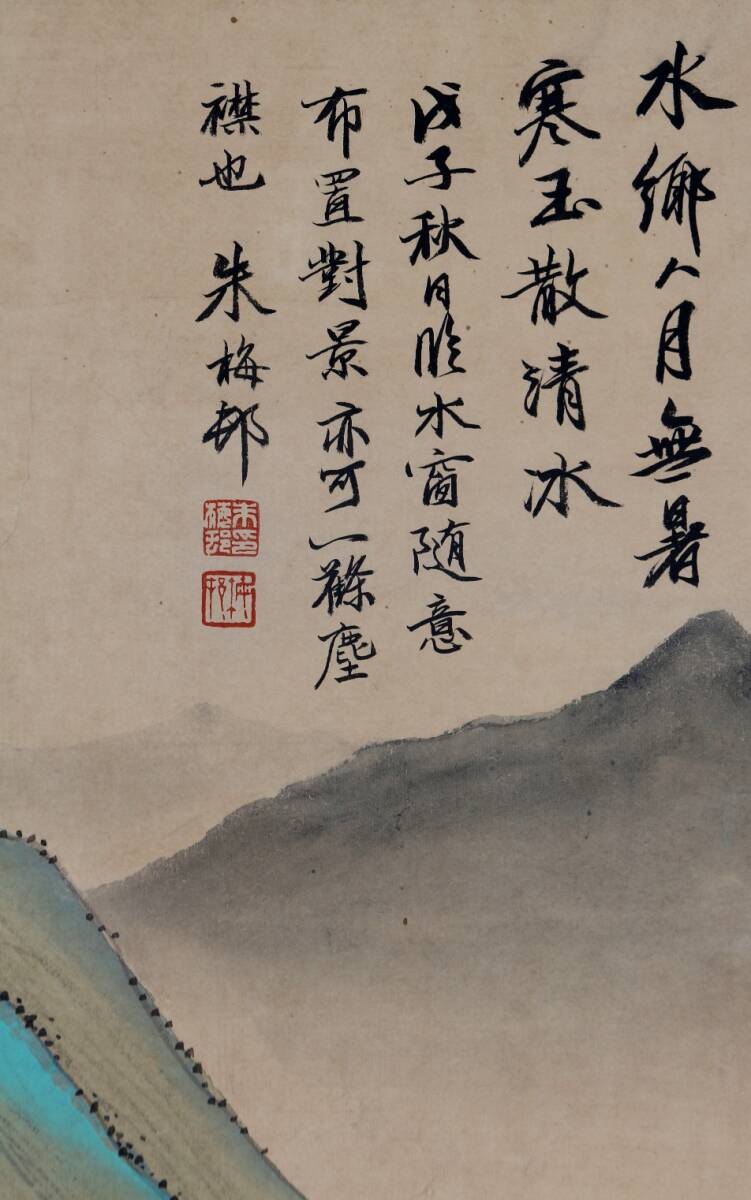 水鄉八月無暑
寒玉散清冰
戊子秋日臨水窗隨意
布置對景亦可一滌塵
襟也 朱梅邨